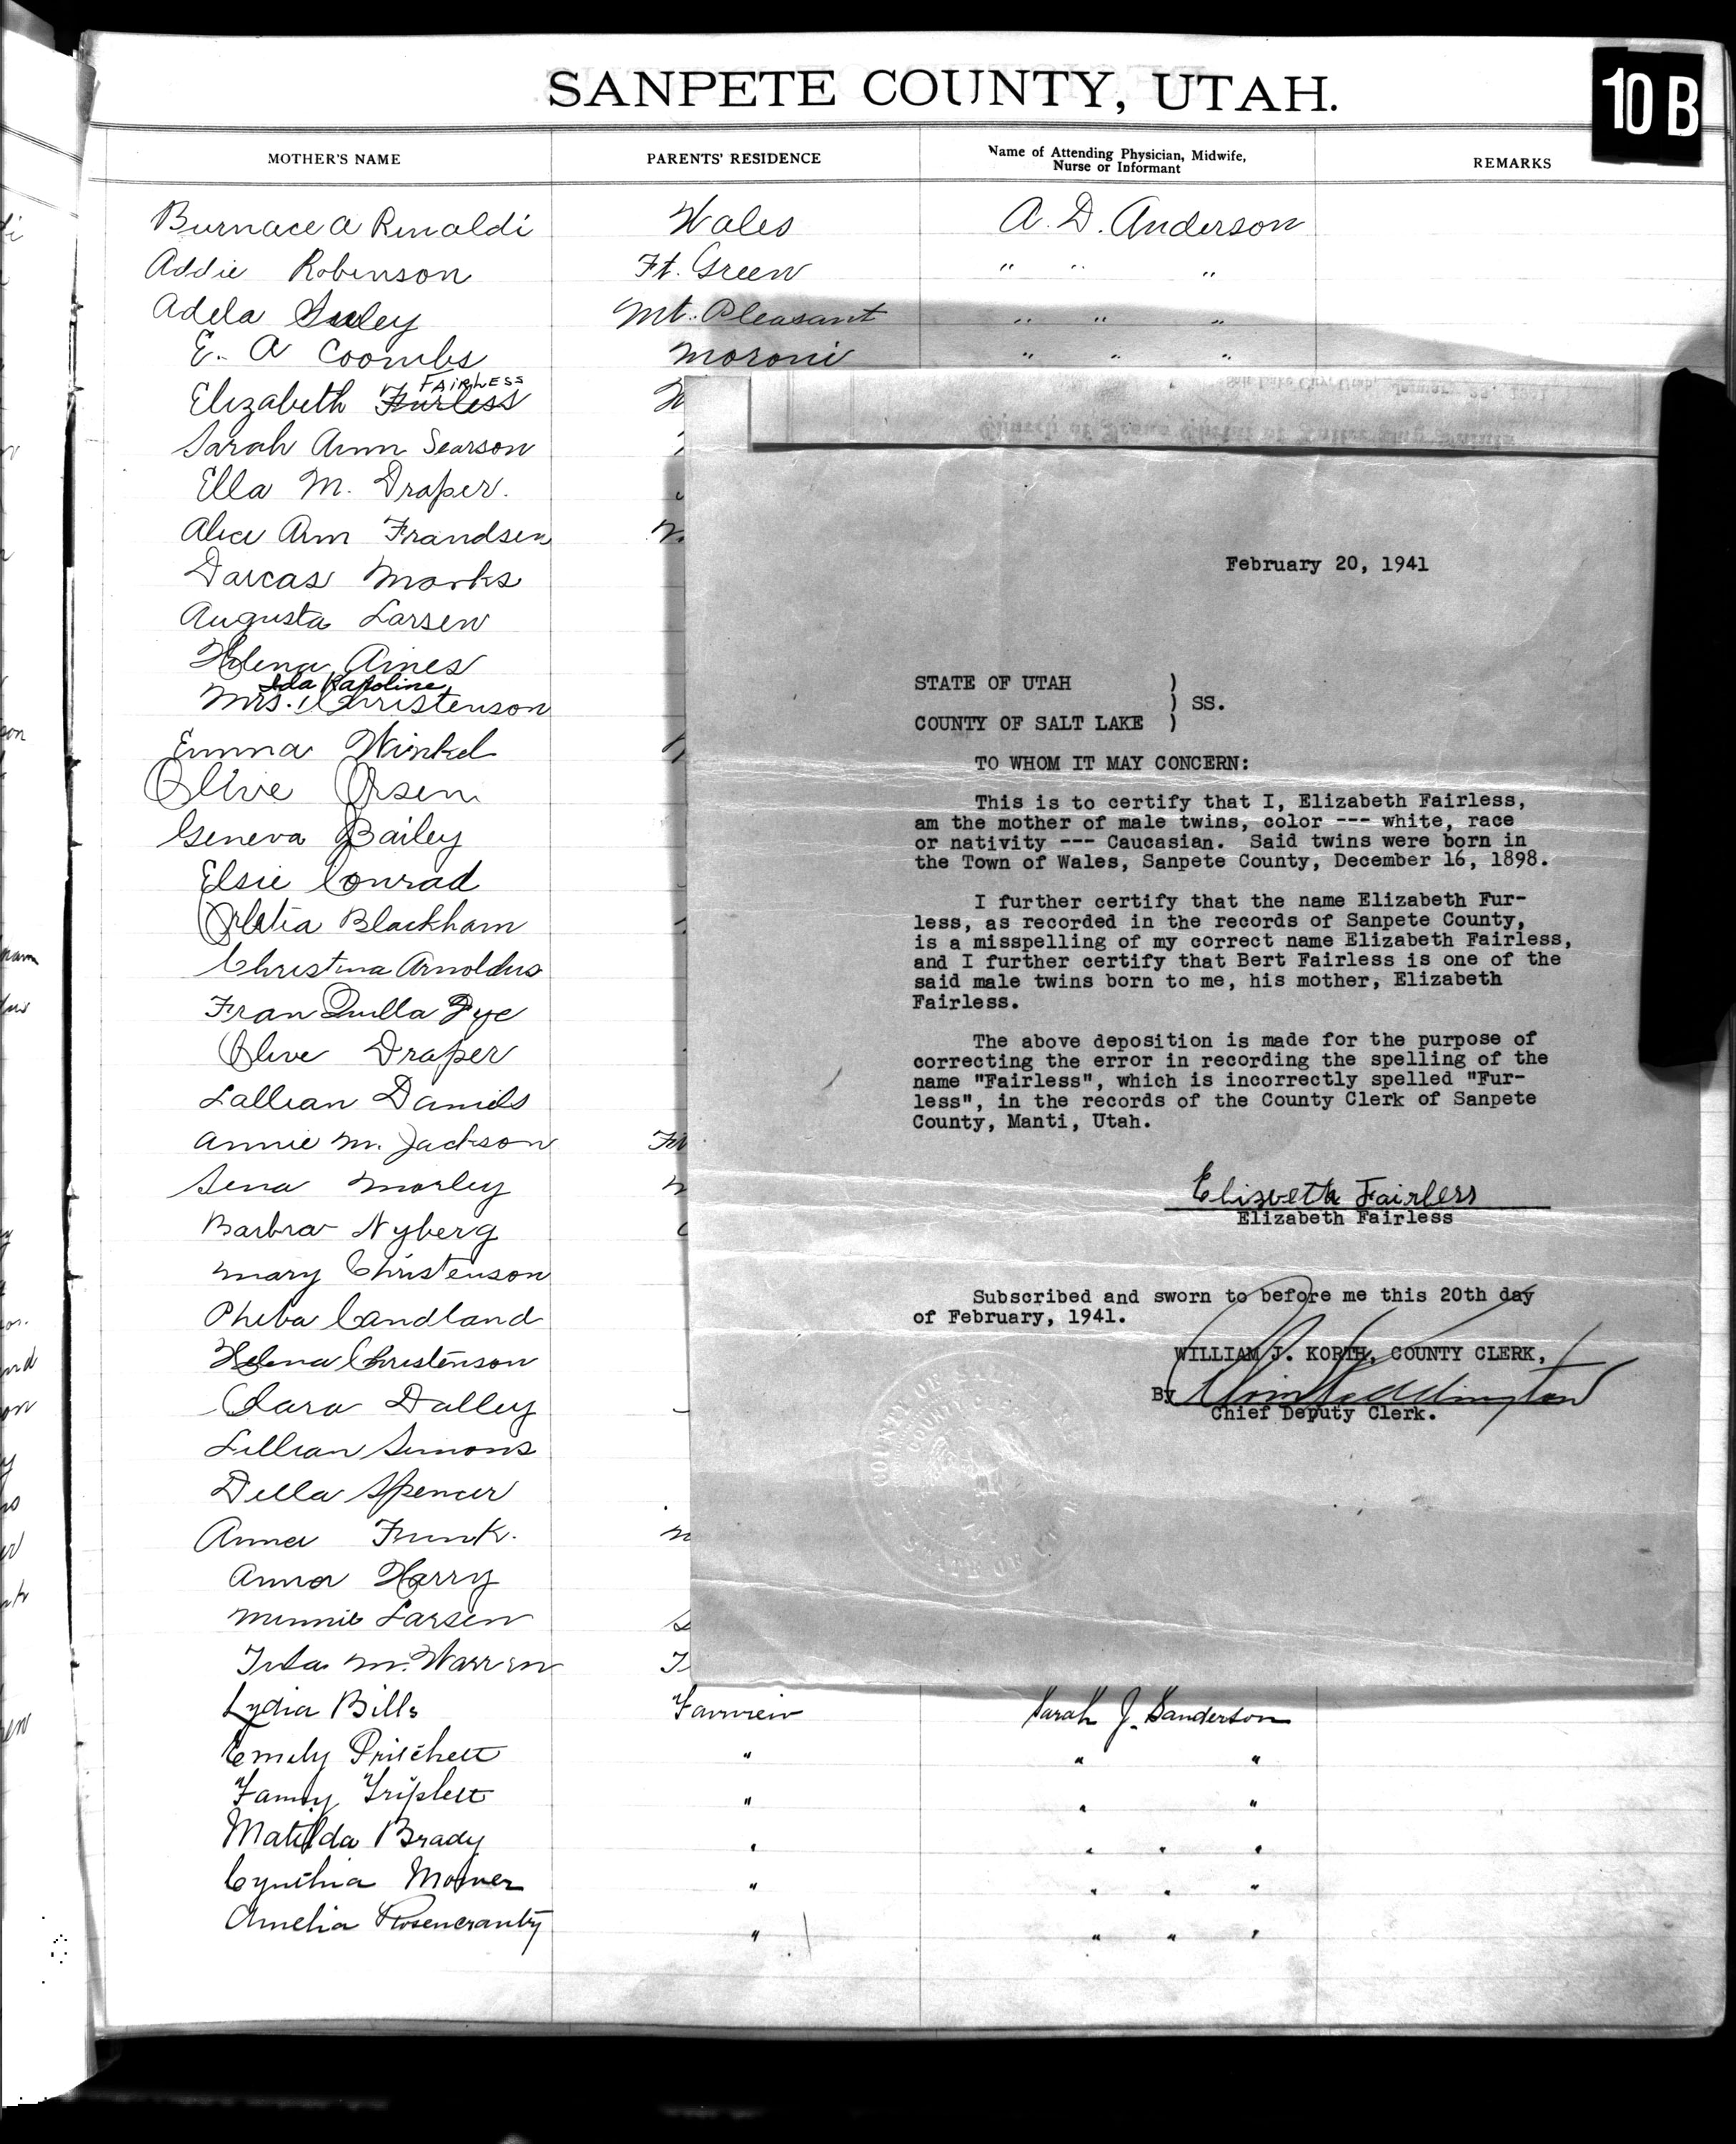 SANPETE COUNTY, UTAH.
10 B
MOTHER'S NAME PARENTS' RESIDENCE Name of Attending Physician, Midwife, Nurse or Informant REMARKS
Burnace A Rinaldi Wales A. D. Anderson
Addie Robinson Ft. Green " " "
Adela Seeley Mt. Pleasant " " "
E. A Coombs Moroni " " "
FAIRLESS
Elizabeth Furless
Sarah Ann Searson
Ella M. Draper.
Alice Ann Frandsen
Darcas Marks
Augusta Larsen
Helena Aines
Ida Karoline
Mrs. Christenson
Emma Winkel
Olive Orsen
Geneva Bailey
Elsie Conrad
Orletia Blackham
Christina Arnoldus
Fran Quilla Pye
Olive Draper
Lallian Daniels
Annie M. Jackson
Sena Morley
Barbra Nyberg
Mary Christenson
Pheba Candland
Helena Christenson
Clara Dalley
Lillian Simons
Della Spencer
Anna Funk.
Anna Harry
Minnie Larsen
M. Warren
Lydia Bills Fairview Sarah J. Sanderson
Emily Pritchett " " "
Fanny Triplett " " "
Matilda Brady " " " "
Cynthia Mower " " " "
Amelia Rosencrantz " " " "
Salt Lake City, Utah, January 29, 1941
Church of Jesus Christ of Latter-day Saints
February 20, 1941
STATE OF UTAH )
) SS.
COUNTY OF SALT LAKE )
TO WHOM IT MAY CONCERN:
This is to certify that I, Elizabeth Fairless,
am the mother of male twins, color --- white, race
or nativity --- Caucasian. Said twins were born in
the Town of Wales, Sanpete County, December 16, 1898.
I further certify that the name Elizabeth Fur-
less, as recorded in the records of Sanpete County,
is a misspelling of my correct name Elizabeth Fairless,
and I further certify that Bert Fairless is one of the
said male twins born to me, his mother, Elizabeth
Fairless.
The above deposition is made for the purpose of
correcting the error in recording the spelling of the
name "Fairless", which is incorrectly spelled "Fur-
less", in the records of the County Clerk of Sanpete
County, Manti, Utah.
Elizbeth Fairless
Elizabeth Fairless
Subscribed and sworn to before me this 20th day
of February, 1941.
WILLIAM J. KORTH, COUNTY CLERK,
By
Chief Deputy Clerk.
COUNTY OF SALT LAKE
COUNTY CLERK
STATE OF UTAH